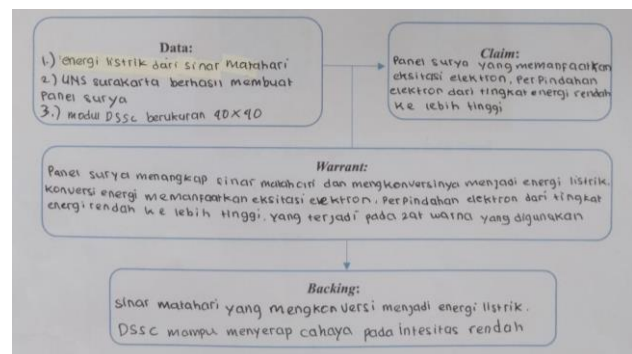 Data:
1.) energi listrik dari sinar matahari
2) UNS surakarta berhasil membuat
panel surya
3.) modul DSSC berukuran 40x40
Claim:
Panel surya yang memanfaatkan
eksitasi elektron, perpindahan
elektron dari tingkat energi rendah
ke lebih tinggi
Warrant:
Panel surya menangkap sinar matahari dan mengkonversinya menjadi energi listrik.
konversi energi memanfaatkan eksitasi elektron, perpindahan elektron dari tingkat
energi rendah ke lebih tinggi, yang terjadi pada zat warna yang digunakan
Backing:
sinar matahari yang mengkonversi menjadi energi listrik.
DSSC mampu menyerap cahaya pada intesitas rendah